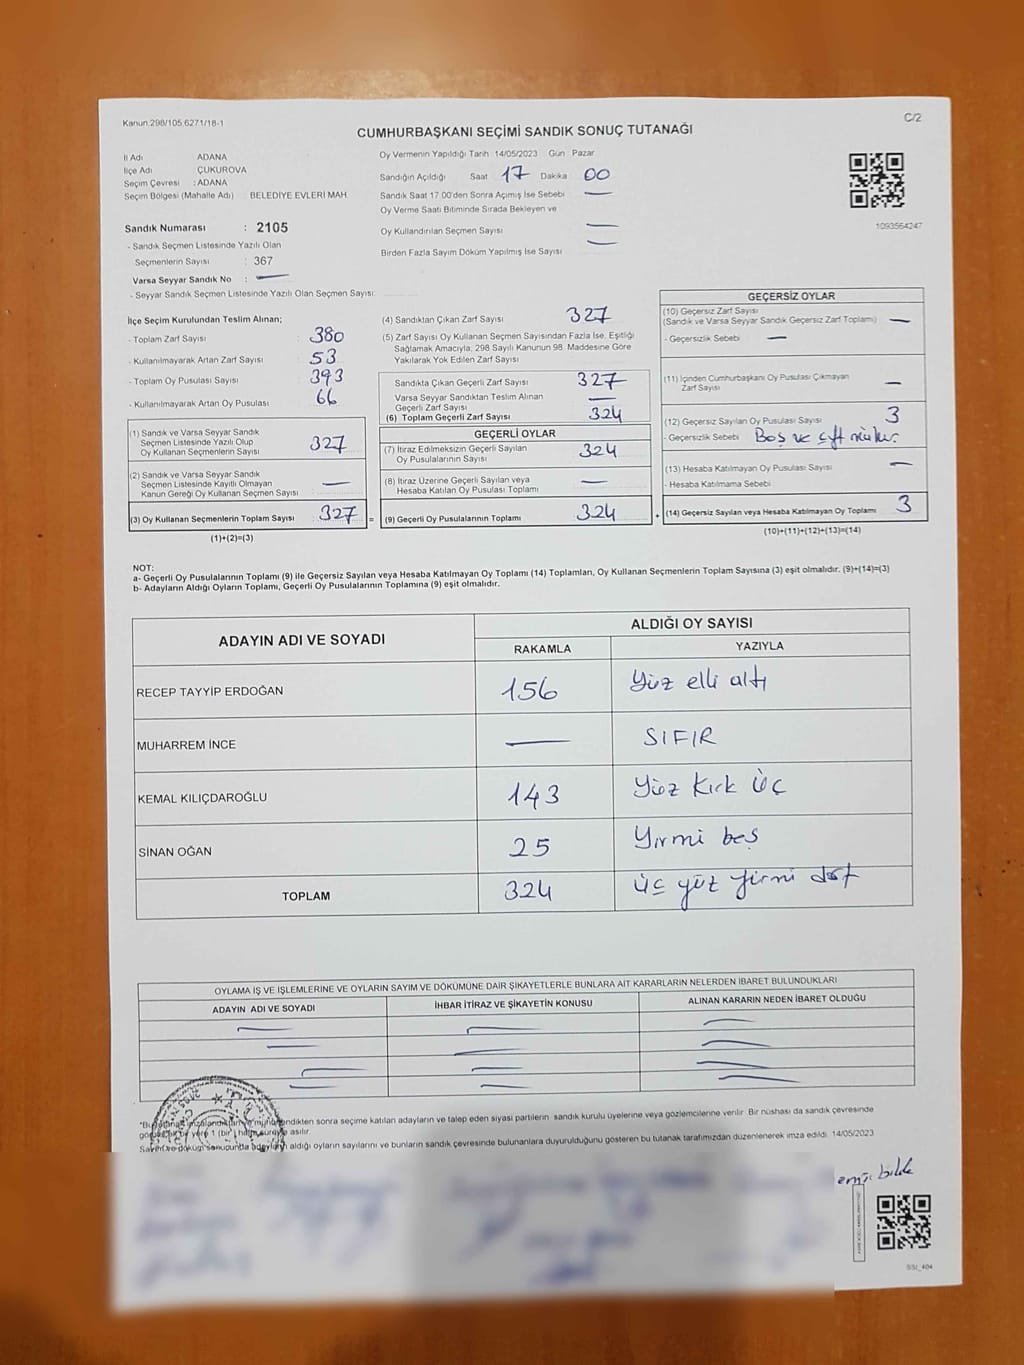 Kanun.298/105,6271/18-1
C/2
CUMHURBAŞKANI SEÇİMİ SANDIK SONUÇ TUTANAĞI
İl Adı ADANA
İlçe Adı ÇUKUROVA
Seçim Çevresi : ADANA
Seçim Bölgesi (Mahalle Adı) BELEDİYE EVLERİ MAH.
Sandık Numarası : 2105
- Sandık Seçmen Listesinde Yazılı Olan
Seçmenlerin Sayısı : 367
Varsa Seyyar Sandık No : —
- Seyyar Sandık Seçmen Listesinde Yazılı Olan Seçmen Sayısı:
Oy Vermenin Yapıldığı Tarih 14/05/2023 Gün : Pazar
Sandığın Açıldığı Saat 17 Dakika 00
Sandık Saat 17.00'den Sonra Açımış İse Sebebi —
Oy Verme Saati Bitiminde Sırada Bekleyen ve
Oy Kullandırılan Seçmen Sayısı —
Birden Fazla Sayım Döküm Yapılmış İse Sayısı —
1093564247
İlçe Seçim Kurulundan Teslim Alınan;
- Toplam Zarf Sayısı : 380
- Kullanılmayarak Artan Zarf Sayısı : 53
- Toplam Oy Pusulası Sayısı : 393
- Kullanılmayarak Artan Oy Pusulası : 66
(1) Sandık ve Varsa Seyyar Sandık
Seçmen Listesinde Yazılı Olup
Oy Kullanan Seçmenlerin Sayısı 327
(2) Sandık ve Varsa Seyyar Sandık
Seçmen Listesinde Kayıtlı Olmayan
Kanun Gereği Oy Kullanan Seçmen Sayısı —
(3) Oy Kullanan Seçmenlerin Toplam Sayısı 327 =
(1)+(2)=(3)
(4) Sandıktan Çıkan Zarf Sayısı 327
(5) Zarf Sayısı Oy Kullanan Seçmen Sayısından Fazla İse, Eşitliği
Sağlamak Amacıyla; 298 Sayılı Kanunun 98. Maddesine Göre
Yakılarak Yok Edilen Zarf Sayısı
Sandıkta Çıkan Geçerli Zarf Sayısı 327
Varsa Seyyar Sandıktan Teslim Alınan
Geçerli Zarf Sayısı —
(6) Toplam Geçerli Zarf Sayısı 324
GEÇERLİ OYLAR
(7) İtiraz Edilmeksizin Geçerli Sayılan
Oy Pusulalarının Sayısı 324
(8) İtiraz Üzerine Geçerli Sayılan veya
Hesaba Katılan Oy Pusulası Toplamı —
(9) Geçerli Oy Pusulalarının Toplamı 324 +
GEÇERSİZ OYLAR
(10) Geçersiz Zarf Sayısı
(Sandık ve Varsa Seyyar Sandık Geçersiz Zarf Toplamı) —
- Geçersizlik Sebebi : —
(11) İçinden Cumhurbaşkanı Oy Pusulası Çıkmayan
Zarf Sayısı —
(12) Geçersiz Sayılan Oy Pusulası Sayısı 3
- Geçersizlik Sebebi Boş ve çift
(13) Hesaba Katılmayan Oy Pusulası Sayısı —
- Hesaba Katılmama Sebebi
(14) Geçersiz Sayılan veya Hesaba Katılmayan Oy Toplamı 3
(10)+(11)+(12)+(13)=(14)
NOT:
a- Geçerli Oy Pusulalarının Toplamı (9) ile Geçersiz Sayılan veya Hesaba Katılmayan Oy Toplamı (14) Toplamları, Oy Kullanan Seçmenlerin Toplam Sayısına (3) eşit olmalıdır. (9)+(14)=(3)
b- Adayların Aldığı Oyların Toplamı, Geçerli Oy Pusulalarının Toplamına (9) eşit olmalıdır.
ADAYIN ADI VE SOYADI ALDIĞI OY SAYISI
RAKAMLA YAZIYLA
RECEP TAYYİP ERDOĞAN 156 Yüz elli altı
MUHARREM İNCE — SIFIR
KEMAL KILIÇDAROĞLU 143 Yüz Kırk Üç
SİNAN OĞAN 25 Yirmi beş
TOPLAM 324 Üç yüz yirmi dört
OYLAMA İŞ VE İŞLEMLERİNE VE OYLARIN SAYIM VE DÖKÜMÜNE DAİR ŞİKAYETLERLE BUNLARA AİT KARARLARIN NELERDEN İBARET BULUNDUKLARI
ADAYIN ADI VE SOYADI İHBAR İTİRAZ VE ŞİKAYETİN KONUSU ALINAN KARARIN NEDEN İBARET OLDUĞU
dikten sonra seçime katılan adayların ve talep eden siyasi partilerin sandık kurulu üyelerine veya gözlemcilerine verilir. Bir nüshası da sandık çevresinde
yere 1 (bir) hafta süreyle asılır.
Sayım ve döküm sonucunda adayların aldığı oyların sayılarını ve bunların sandık çevresinde bulunanlara duyurulduğunu gösteren bu tutanak tarafımızdan düzenlenerek imza edildi. 14/05/2023
SSİ_404